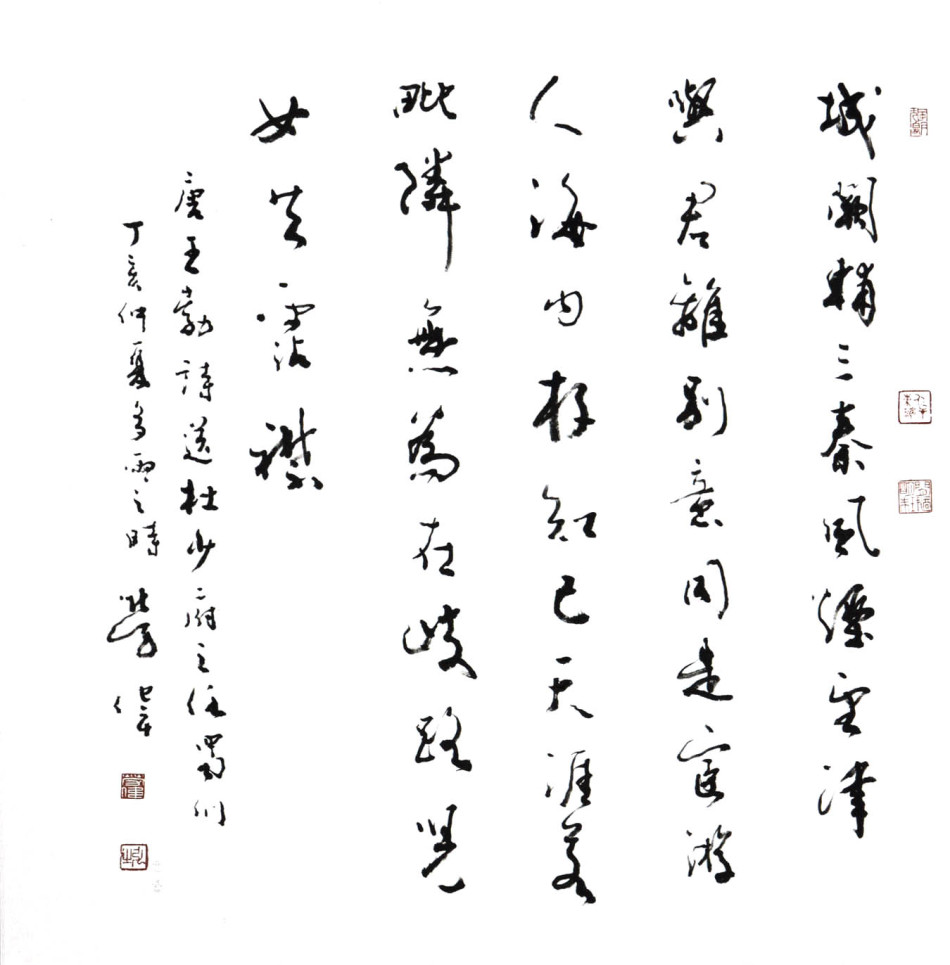 城闕輔三秦風煙望津
與君離別意同是宦游
人海內存知己天涯若
毗隣無為在歧路兒
女共霑襟
唐王勃詩送杜少府之任蜀州
丁亥仲夏多雨之時